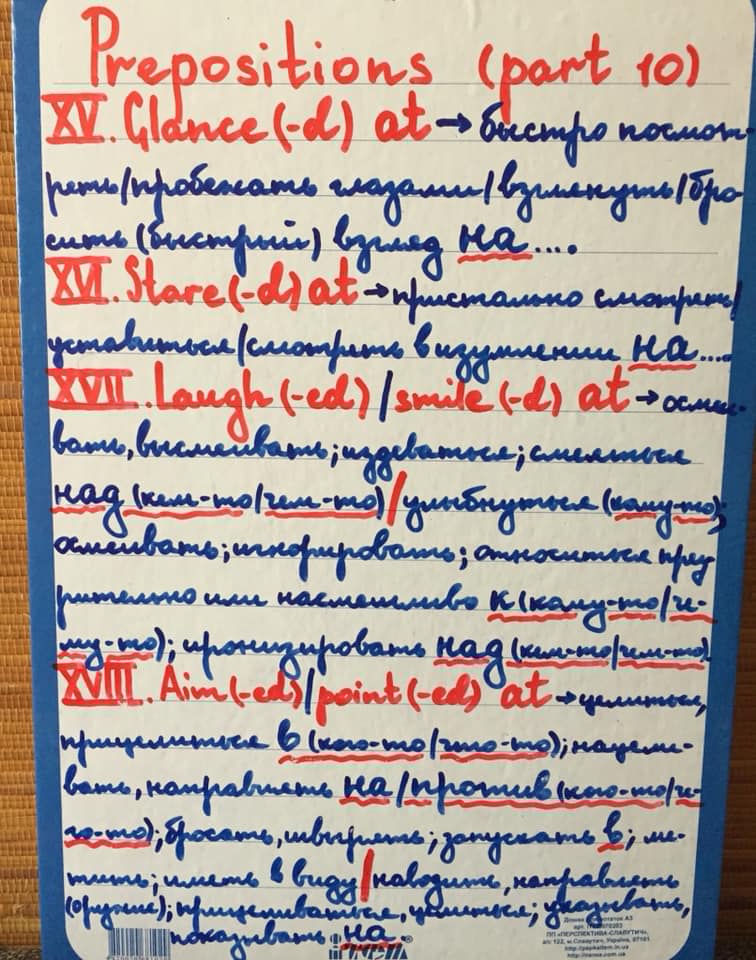 Prepositions (part 10)
XV. Glance (-d) at → быстро посмот-
реть/пробежать глазами/взглянуть/бро-
сить (быстрый) взгляд на....
XVI. Stare (-d) at → пристально смотреть/
уставиться/смотреть в изумлении на....
XVII. Laugh (-ed) / smile (-d) at → осмеи-
вать, высмеивать; издеваться; смеяться
над (кем-то/чем-то) / улыбнуться (кому-то);
осмеивать; игнорировать; относиться през-
рительно или насмешливо к (кому-то/че-
му-то); иронизировать над (кем-то/чем-то)
XVIII. Aim (-ed) / point (-ed) at → целиться,
прицелиться в (кого-то/что-то); нацели-
вать, направлять на/против (кого-то/че-
го-то); бросать, швырять; запускать в; ме-
тить; иметь в виду / наводить, направлять
(оружие); прицеливаться, целиться; указывать,
показывать на.
А3
ПП «ПЕРСПЕКТИВА-СЛАВУТИЧ»,
а/с 122, м.Славутич, Україна, 07101